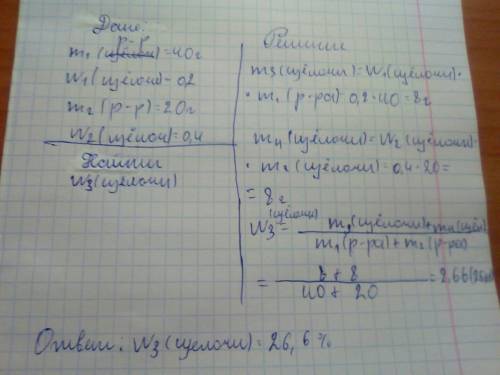 Дано:
р-р
m₁ (щёлочи) = 40 г
w₁ (щёлочи) = 0,2
m₂ (р-р) = 20 г
w₂ (щёлочи) = 0,4
Найти
w₃ (щёлочи)
Решение
m₃ (щёлочи) = w₁ (щёлочи) ·
· m₁ (р-ра) 0,2 · 40 = 8 г
m₄ (щёлочи) = w₂ (щёлочи) ·
· m₂ (щёлочи) = 0,4 · 20 =
= 8 г
(щёлочи)
w₃ = m₃ (щёлочи) + m₄ (щёл)
m₁ (р-ра) + m₂ (р-ра)
= 8 + 8
40 + 20
Ответ: w₃ (щёлочи) = 26,6 %